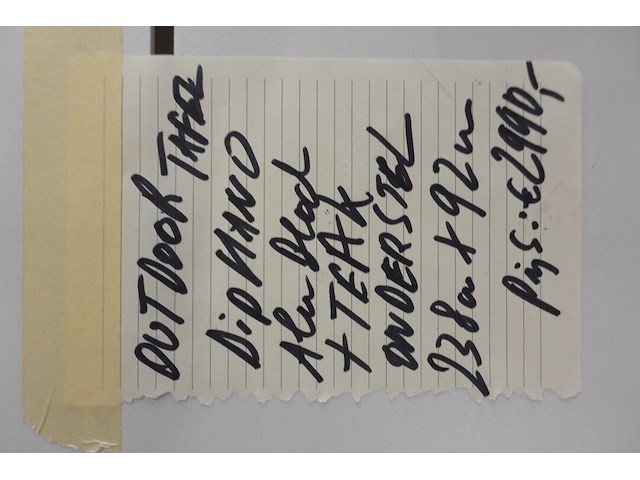 OUTDOOR TAFEL
DipHANO
Alu Blad
+ TEAK
ONDERSTEL
238cm x 92cm
Prijs: € 2990,-